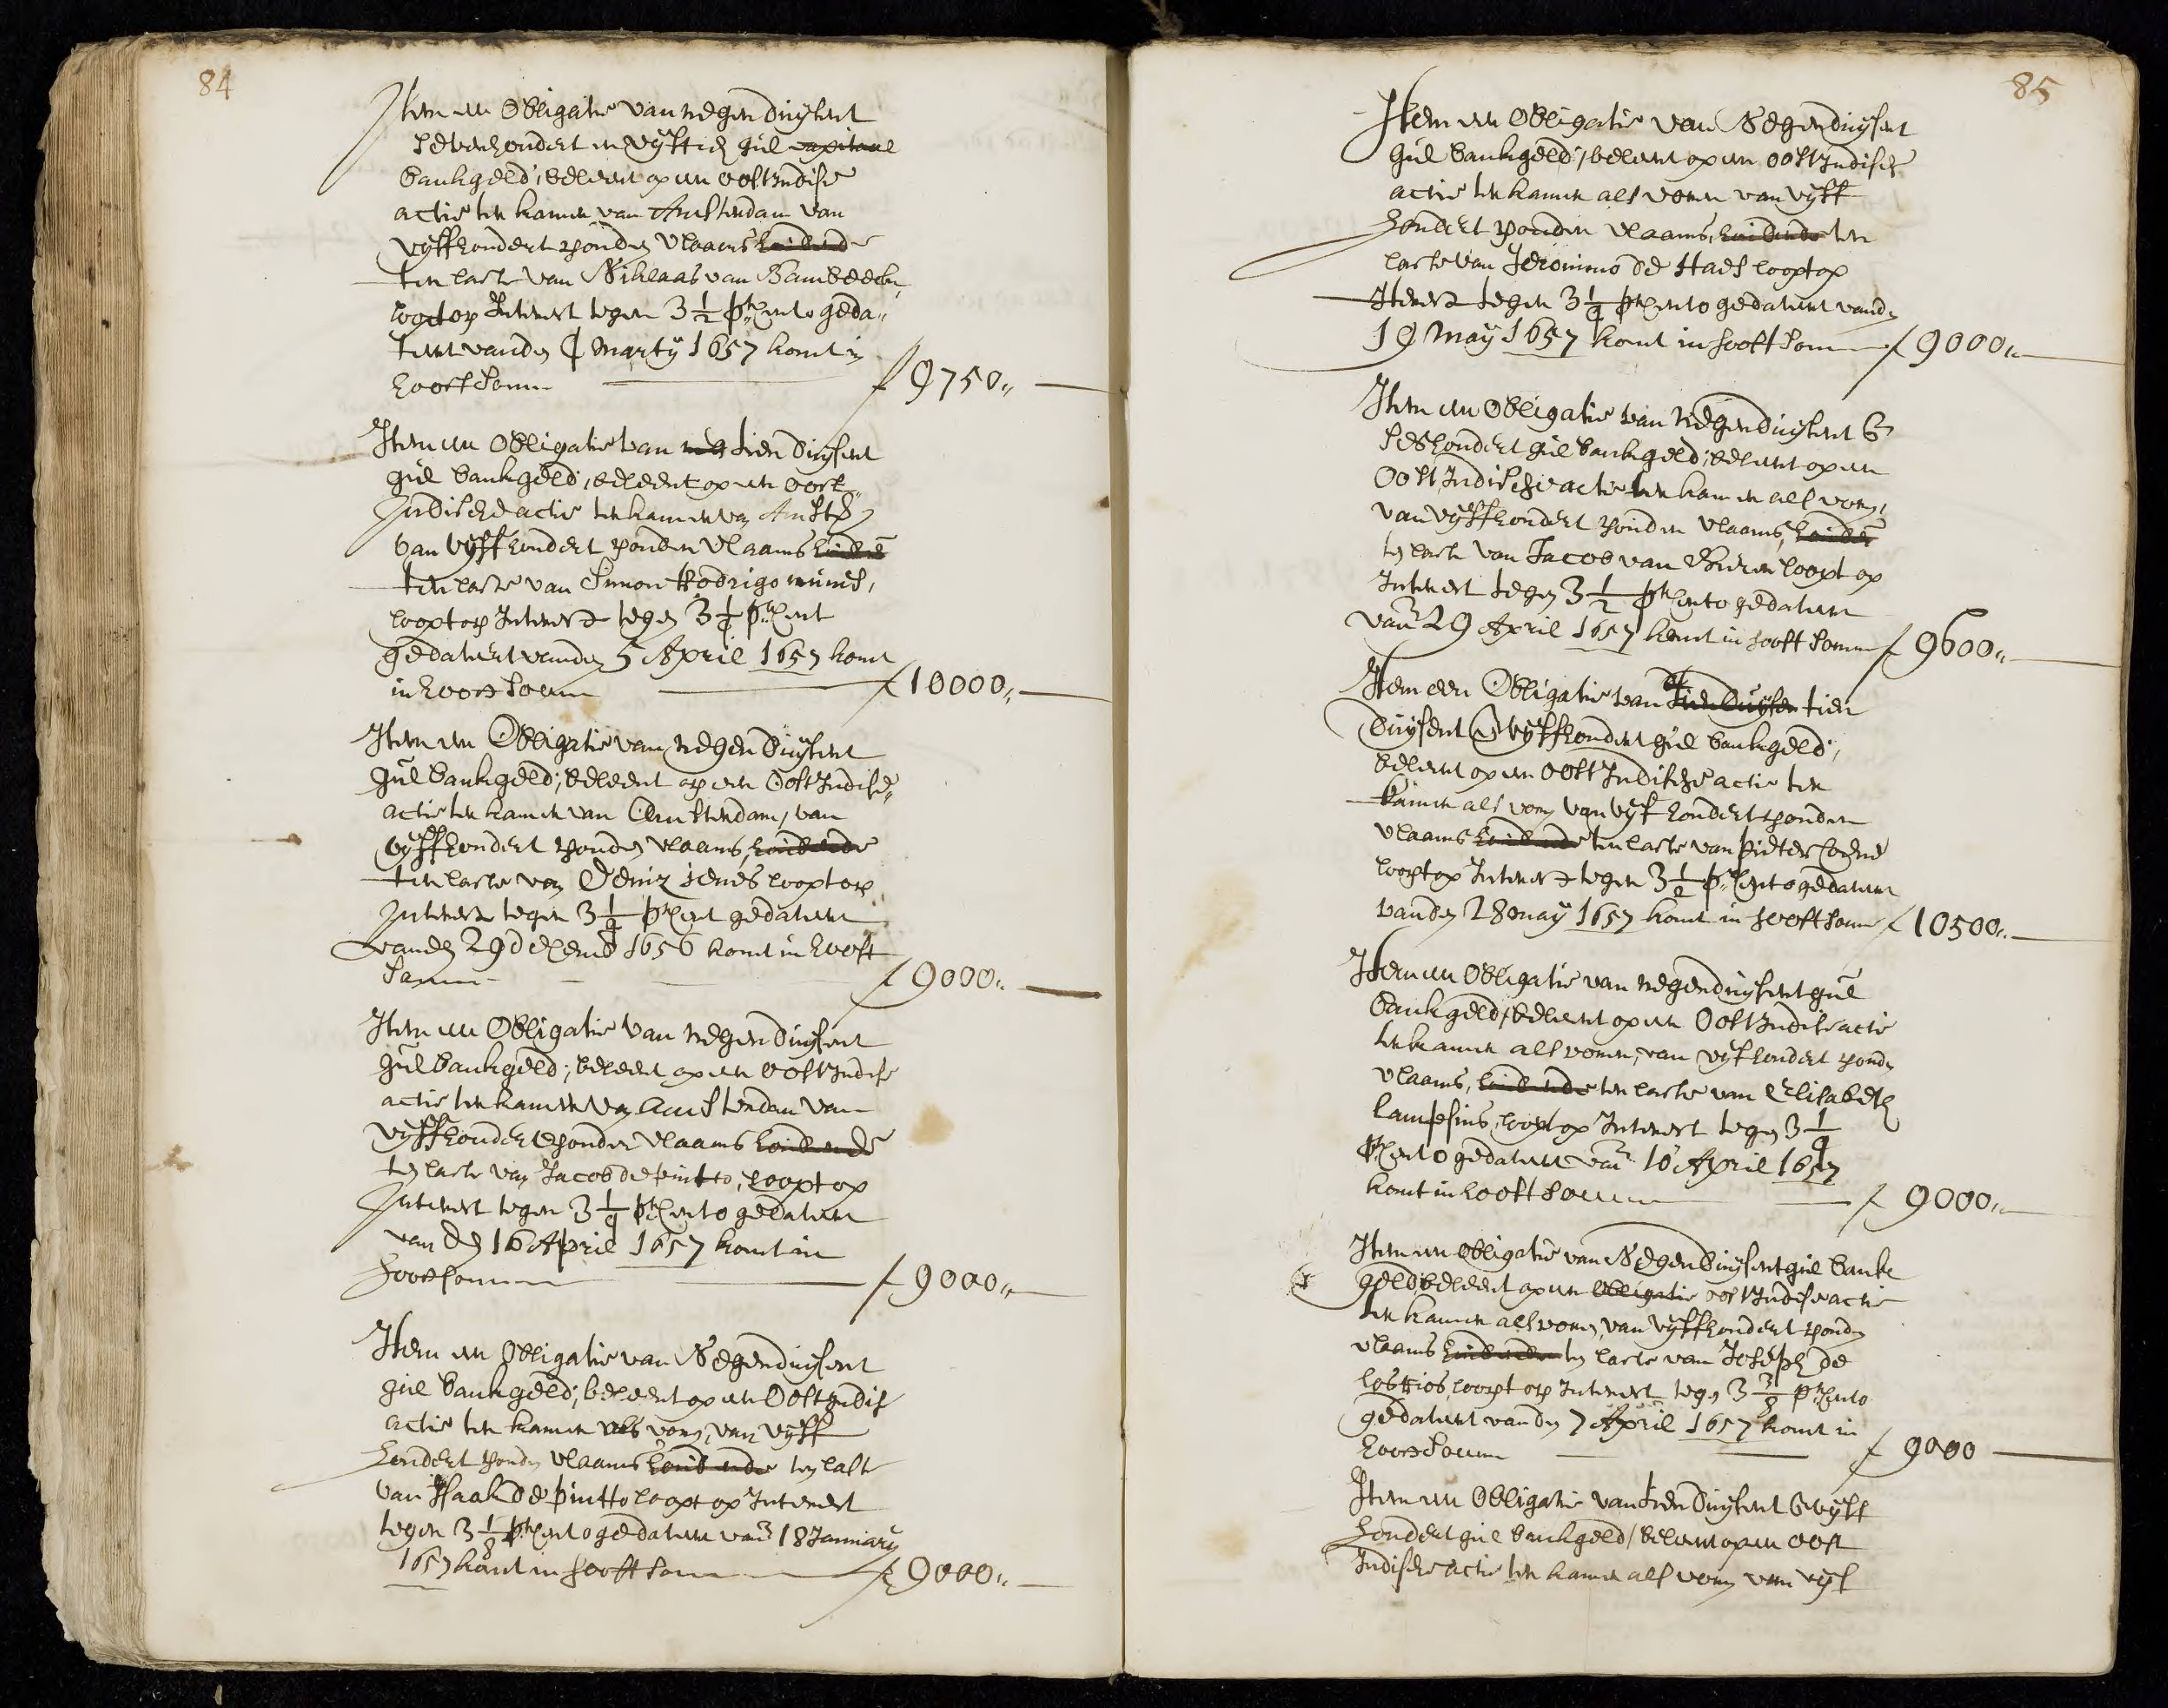 84
Item een Obligatie van negen duijsent
sevenhondert en vijftich gul capitael
bankgeld, beleent op een oostIndise
actie ten kamer van Amsterdam van
vijffhondert ponden vlaams houdende
ten laste van Niklaas van Bambeeck,
loopt op Interest tegen 3 1/2 pr Cento geda"
teert vanden Marty 1657 komt in
hooftsomm f 9750"
Item een Obligatie van tien duijsent
gul bankgeld, beleent op een oost
Indische actie ten kamer van Amstd
van vijffhondert ponden vlaams
ten laste van Simon Rodrigo nunes,
loopt op Interest tegen 3 1/4 pr Cent
gedateert vanden 5 April 1657 komt
in hooft somm f 10000"
Item een Obligatie van negen duijsent
gul bankgeld, beleent op een Oost Indise
actie ten kamer van Amsterdam, van
vijffhondert ponden vlaams, houdende
ten laste van Deniz jenes loopt op
Interest tegen 3 1/2 pr Cent gedateert
vanden 29 december 1656 komt in hooft
somm f 9000"
Item een Obligatie van negen duijsent
gul bankgeld, beleent op een oostIndise
actie ten kamer van Amsterdam van
vijffhondert ponden vlaams houdende
ten laste van Jacob de pintto, loopt op
Interest tegen 3 1/4 pr Cento gedateert
van den 16 April 1657 komt in
hooftsomm f 9000"
Item een Obligatie van Negenduijsent
gul bankgeld, beleent op een Oost Indise
actie ten kamer als vorn, van vijff
hondert ponden vlaams houdende ten laste
van Isaak de pintto loopt op Interest
tegen 3 1/8 pr Cento gedateert van 18 January
1657 komt in hooft somm f 9000"
85
Item een Obligatie van Negenduijsent
gul bankgeld, beleent op een oostIndische
actie ten kamer als voren van vijff
hondert ponden vlaams, houdende ten
laste van Jeronimo de Haes loopt op
Interest tegen 3 1/4 pr Cento gedateert vanden
19 May 1657 komt in hooft somm f 9000"
Item een Obligatie van negenduijsent &
seshondert gul bankgeld, beleent op een
OostIndische actie ten kamer als vorn,
van vijffhondert ponden vlaams,
ten laste van Jacob van Buren loopt op
Interest tegen 3 1/2 pr Cento gedateert
van 29 April 1657 komt in hooft somm f 9600"
Item een Obligatie van tienduijsen tien
duijsent & vijffhondert gul bankgeld,
beleent op een oost Indische actie ten
kamer als vorn van vijf hondert ponden
vlaams houdende ten laste van pieter
loopt op Interest tegen 3 1/2 pr Cento gedateert
vanden 28 may 1657 komt in hooft somm f 10500"
Item een Obligatie van negenduijsent gul
bankgeld, beleent op een OostIndise actie
ten kamer als voren, van vijfhondert ponden
vlaams, houdende ten laste van Elisabeth
Lampsins, loopt op Interest tegen 3 1/4
pr Cento gedateert van 10 April 1657
komt in hooft somm f 9000"
Item een Obligatie van Negen duijsent gul banke
geld, beleent op een Obligatie oostIndise actie
ten kamer als voren, van vijffhondert ponden
vlaams houdende ten laste van Joseph de
los Rios, loopt op Interest tegen 3 3/8 pr Cento
gedateert vanden 7 April 1657 komt in
hooftsomm f 9000
Item een Obligatie van tien duijsent & vijff
hondert gul bankgeld, beleent op een oost
Indische actie ten kamer als vorn van vijf